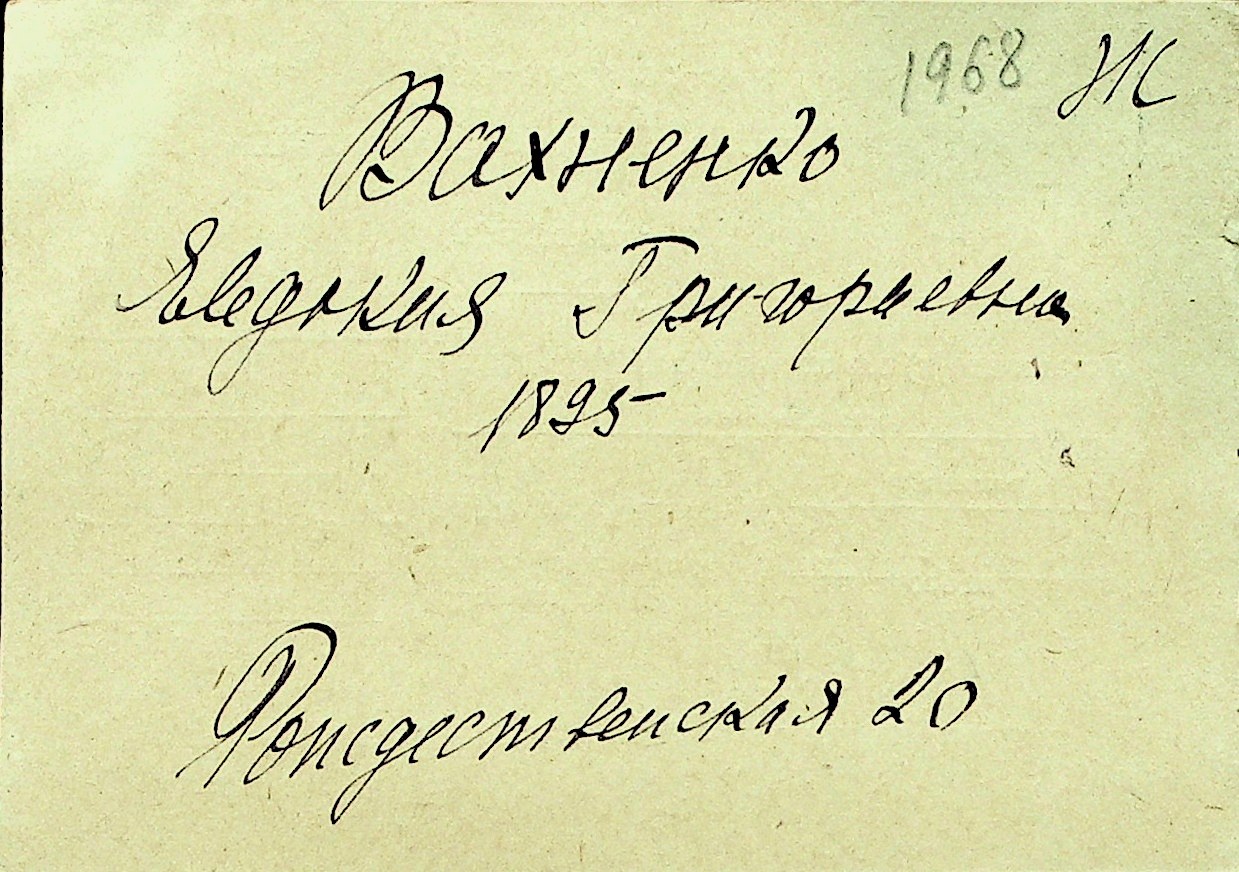 1968 Ж
Вахненко
Евдокия Григорьевна
1895
Рождественская 20